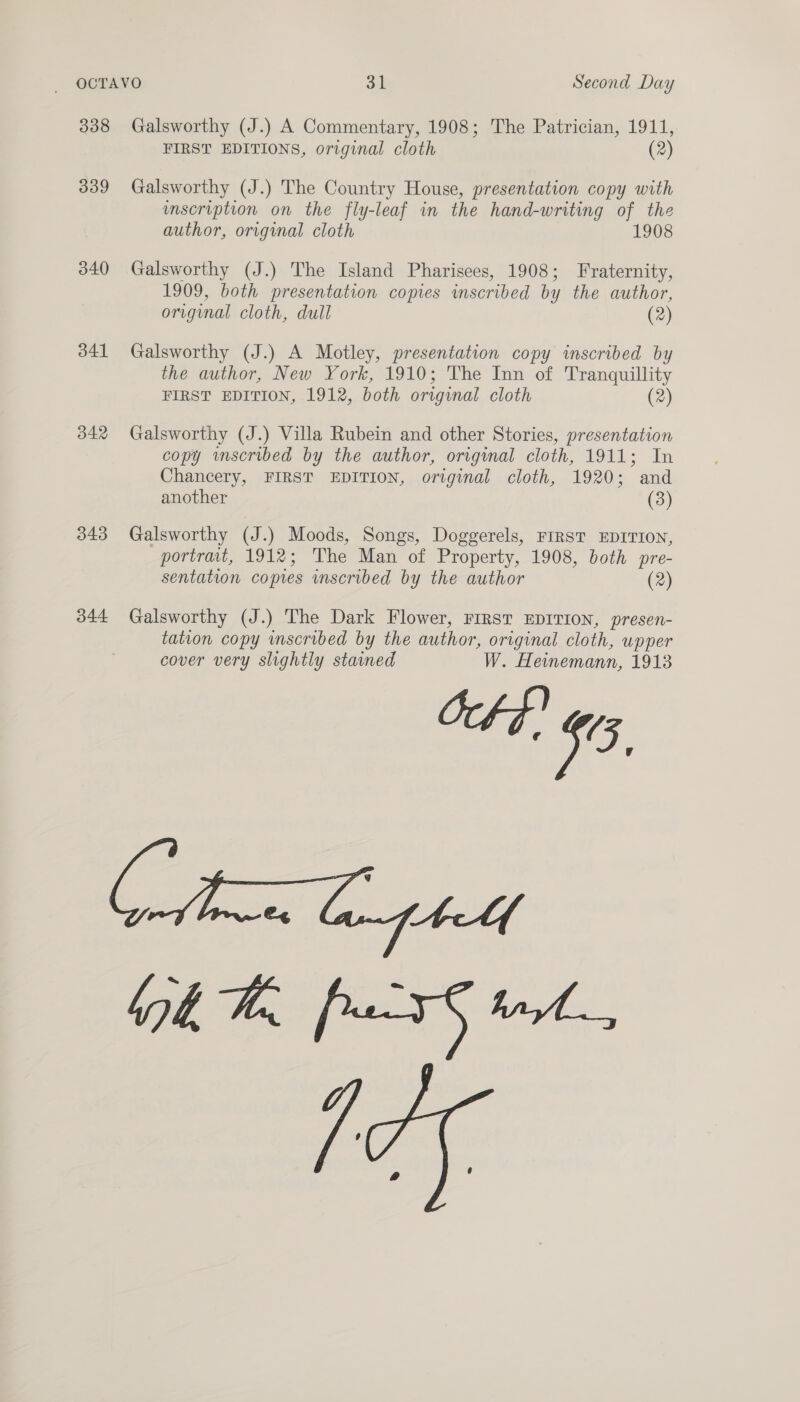 OCTAVO 31 Second Day
338 Galsworthy (J.) A Commentary, 1908; The Patrician, 1911,
FIRST EDITIONS, original cloth (2)
339 Galsworthy (J.) The Country House, presentation copy with
inscription on the fly-leaf in the hand-writing of the
author, original cloth 1908
340 Galsworthy (J.) The Island Pharisees, 1908; Fraternity,
1909, both presentation copies inscribed by the author,
original cloth, dull (2)
341 Galsworthy (J.) A Motley, presentation copy inscribed by
the author, New York, 1910; The Inn of Tranquillity
FIRST EDITION, 1912, both original cloth (2)
342 Galsworthy (J.) Villa Rubein and other Stories, presentation
copy inscribed by the author, original cloth, 1911; In
Chancery, FIRST EDITION, original cloth, 1920; and
another (3)
343 Galsworthy (J.) Moods, Songs, Doggerels, FIRST EDITION,
portrait, 1912; The Man of Property, 1908, both pre-
sentation copies inscribed by the author (2)
344 Galsworthy (J.) The Dark Flower, FIRST EDITION, presen-
tation copy inscribed by the author, original cloth, upper
cover very slightly stained W. Heinemann, 1913
Campbell